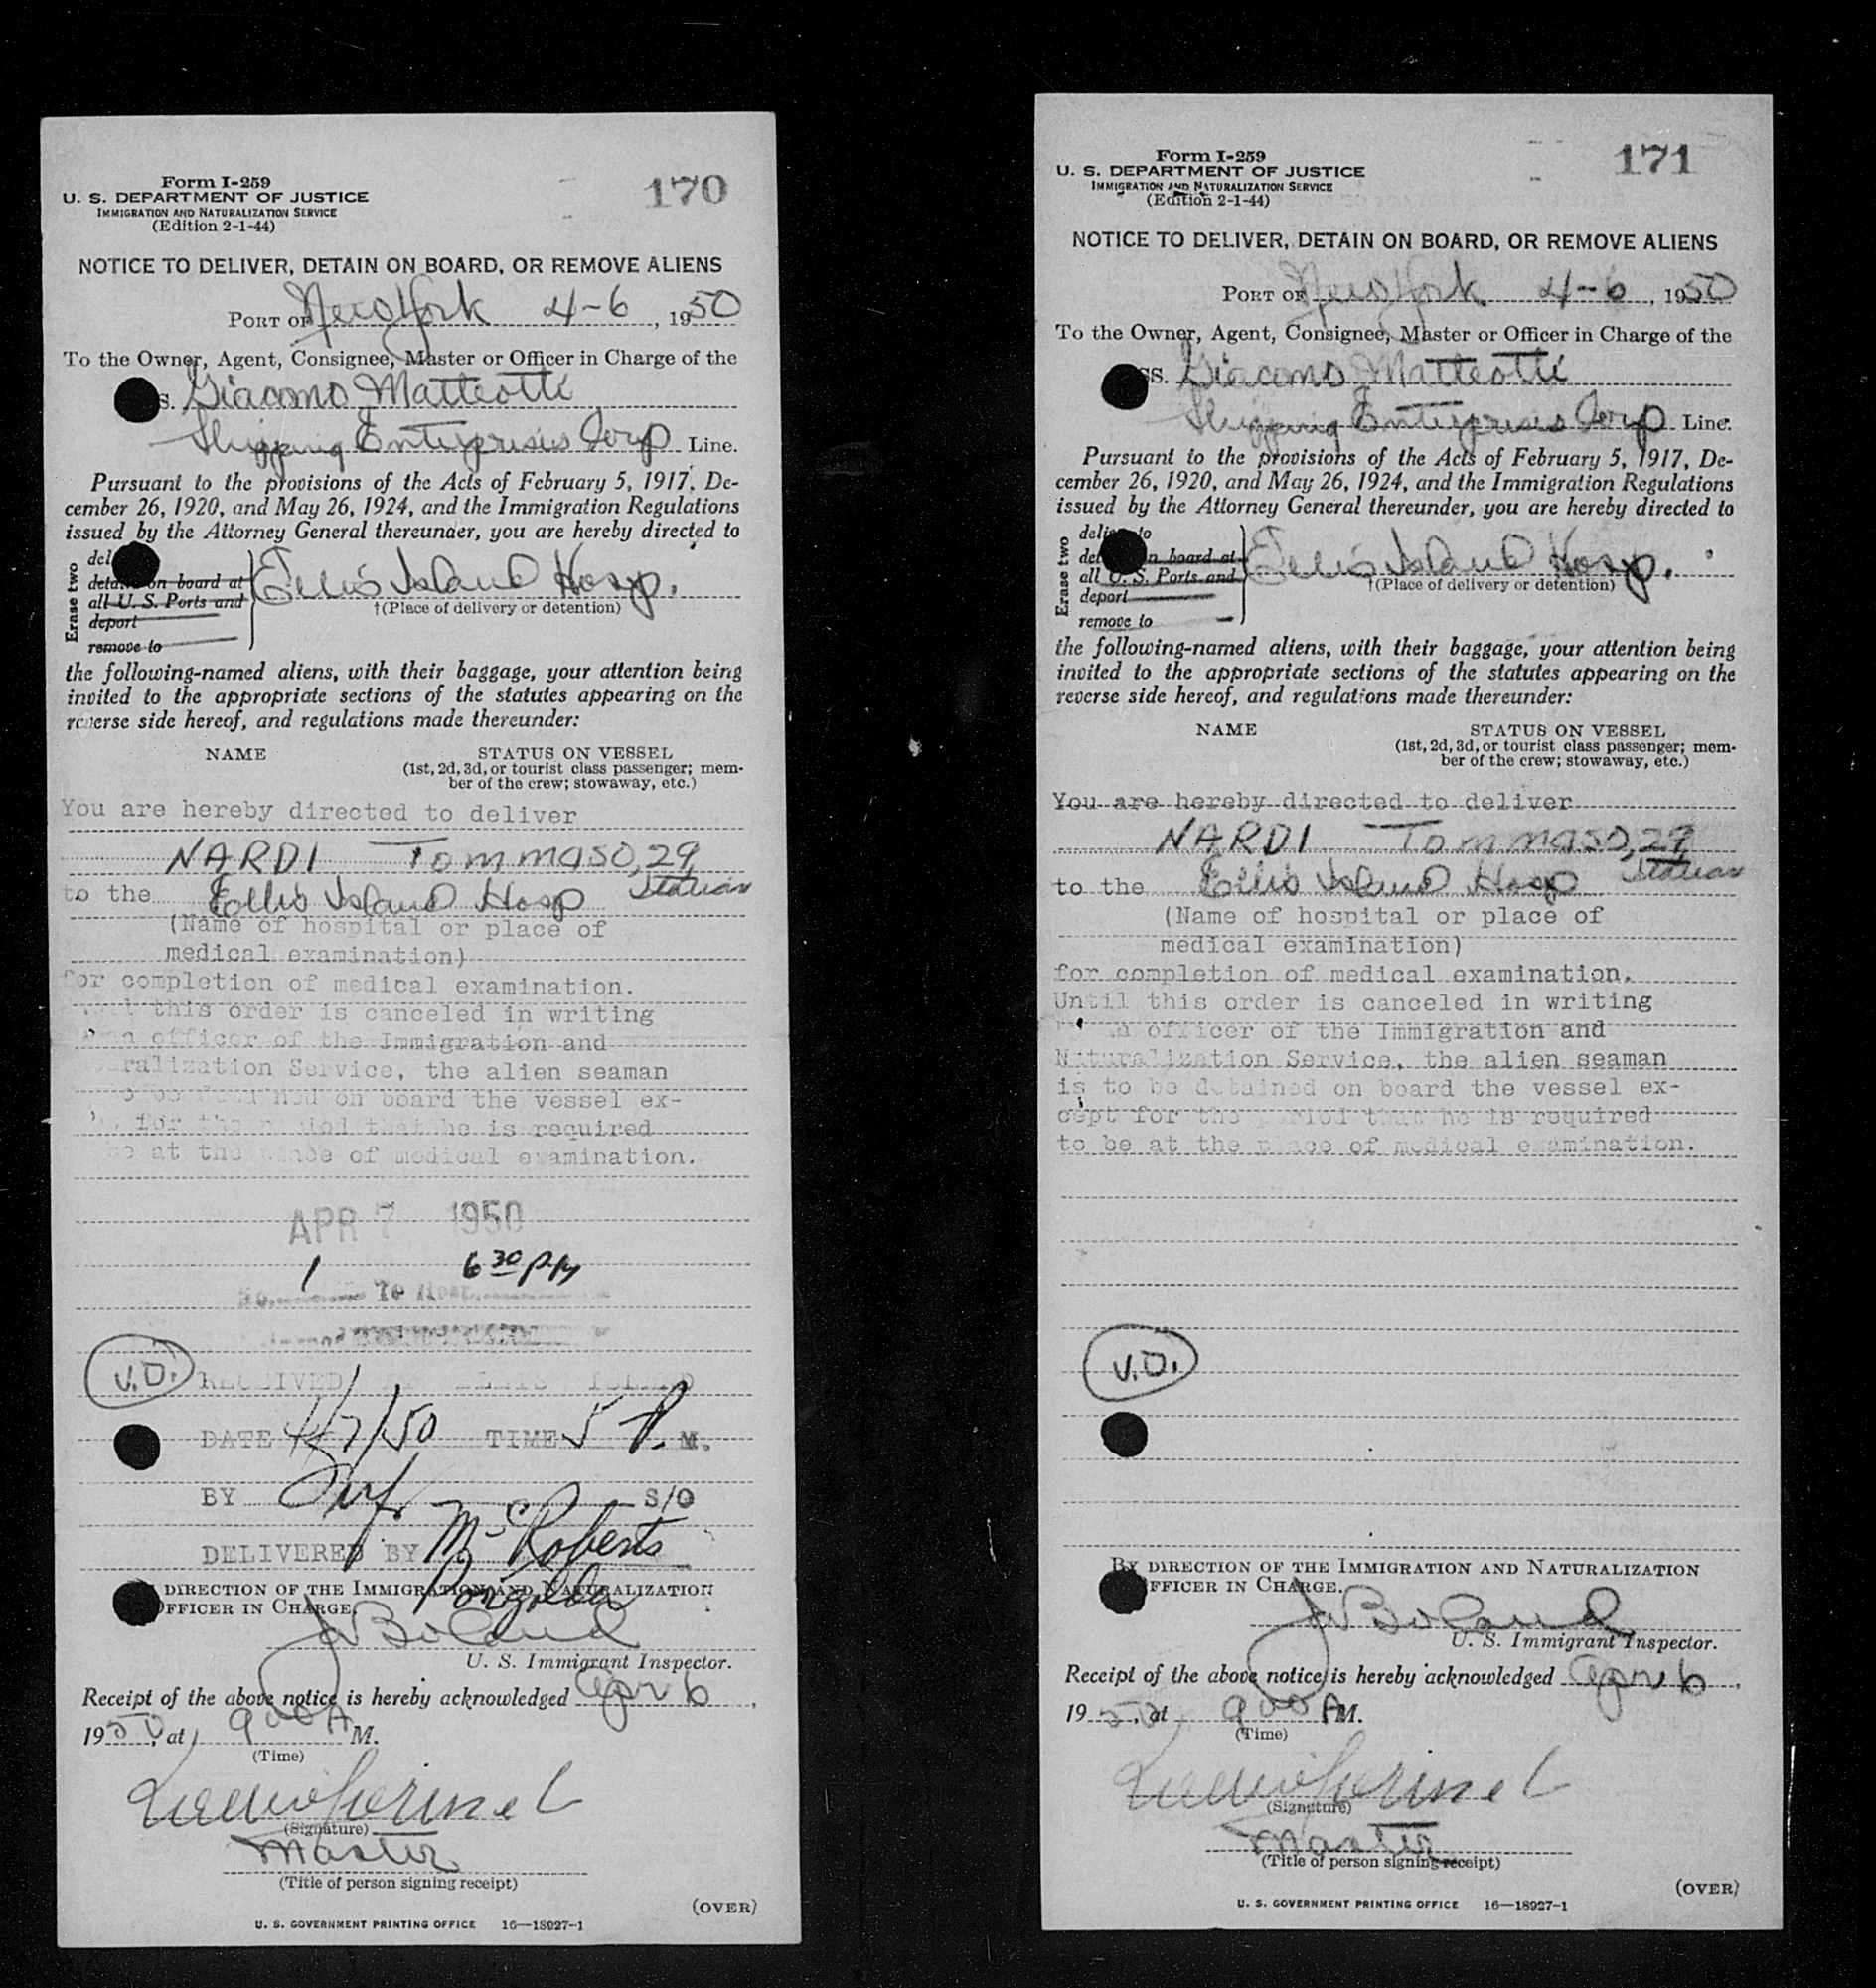 Form I-259
U. S. DEPARTMENT OF JUSTICE
IMMIGRATION AND NATURALIZATION SERVICE
(Edition 2-1-44)
170
NOTICE TO DELIVER, DETAIN ON BOARD, OR REMOVE ALIENS
PORT OF New York 4-6, 1950
To the Owner, Agent, Consignee, Master or Officer in Charge of the
S. Giacomo Matteotti
Shipping Enterprises Corp Line.
Pursuant to the provisions of the Acts of February 5, 1917, De-
cember 26, 1920, and May 26, 1924, and the Immigration Regulations
issued by the Attorney General thereunder, you are hereby directed to
Erase two
del
detain on board at
all U. S. Ports and
deport
remove to
Ellis Island Hosp.
†(Place of delivery or detention)
the following-named aliens, with their baggage, your attention being
invited to the appropriate sections of the statutes appearing on the
reverse side hereof, and regulations made thereunder:
NAME STATUS ON VESSEL
(1st, 2d, 3d, or tourist class passenger; mem-
ber of the crew; stowaway, etc.)
You are hereby directed to deliver
NARDI Tommaso, 29
Italian
to the Ellis Island Hosp
(Name of hospital or place of
medical examination)
for completion of medical examination.
this order is canceled in writing
officer of the Immigration and
ralization Service, the alien seaman
on board the vessel ex-
for the period that he is required
at the place of medical examination.
APR 7 1950
1 6 30 PM
No. To Hosp.
V.D. RECEIVED ELLIS ISLAND
DATE 4/7/50 TIME 5 P. M.
BY S/O
DELIVERED BY McRoberts
DIRECTION OF THE IMMIGRATION AND NATURALIZATION
OFFICER IN CHARGE.
J Boland
U. S. Immigrant Inspector.
Receipt of the above notice is hereby acknowledged Apr 6,
1950, at 900 A M.
(Time)
(Signature)
Master
(Title of person signing receipt)
(OVER)
U. S. GOVERNMENT PRINTING OFFICE 16—18927-1
Form I-259
U. S. DEPARTMENT OF JUSTICE
IMMIGRATION AND NATURALIZATION SERVICE
(Edition 2-1-44)
171
NOTICE TO DELIVER, DETAIN ON BOARD, OR REMOVE ALIENS
PORT OF New York 4-6, 1950
To the Owner, Agent, Consignee, Master or Officer in Charge of the
SS. Giacomo Matteotti
Shipping Enterprises Corp Line.
Pursuant to the provisions of the Acts of February 5, 1917, De-
cember 26, 1920, and May 26, 1924, and the Immigration Regulations
issued by the Attorney General thereunder, you are hereby directed to
Erase two
deliver to
detain on board at
all U. S. Ports and
deport
remove to
Ellis Island Hosp.
†(Place of delivery or detention)
the following-named aliens, with their baggage, your attention being
invited to the appropriate sections of the statutes appearing on the
reverse side hereof, and regulations made thereunder:
NAME STATUS ON VESSEL
(1st, 2d, 3d, or tourist class passenger; mem-
ber of the crew; stowaway, etc.)
You are hereby directed to deliver
NARDI Tommaso, 29
Italian
to the Ellis Island Hosp
(Name of hospital or place of
medical examination)
for completion of medical examination.
Until this order is canceled in writing
officer of the Immigration and
Naturalization Service, the alien seaman
is to be detained on board the vessel ex-
cept for the period that he is required
to be at the place of medical examination.
V.D.
BY DIRECTION OF THE IMMIGRATION AND NATURALIZATION
OFFICER IN CHARGE.
J Boland
U. S. Immigrant Inspector.
Receipt of the above notice is hereby acknowledged Apr 6,
1950, at 900 A M.
(Time)
(Signature)
Master
(Title of person signing receipt)
(OVER)
U. S. GOVERNMENT PRINTING OFFICE 16—18927-1